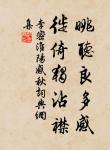 眺聽良多感
徙倚獨沾襟
李密淮陽感秋詞典網
集